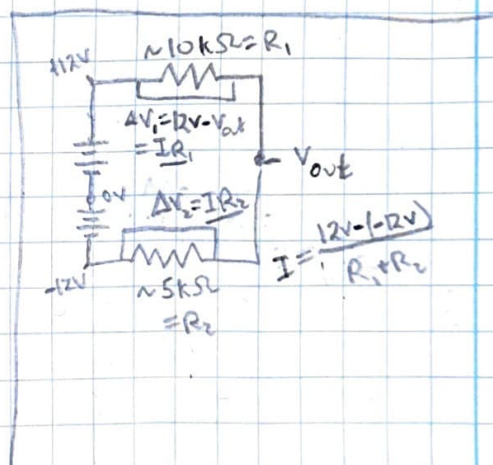 ~10kΩ=R₁
+12V
ΔV₁=12V-Vout
=IR₁
Vout
0V
ΔV₂=IR₂
I=12V-(-12V)
R₁+R₂
-12V
~5kΩ
=R₂